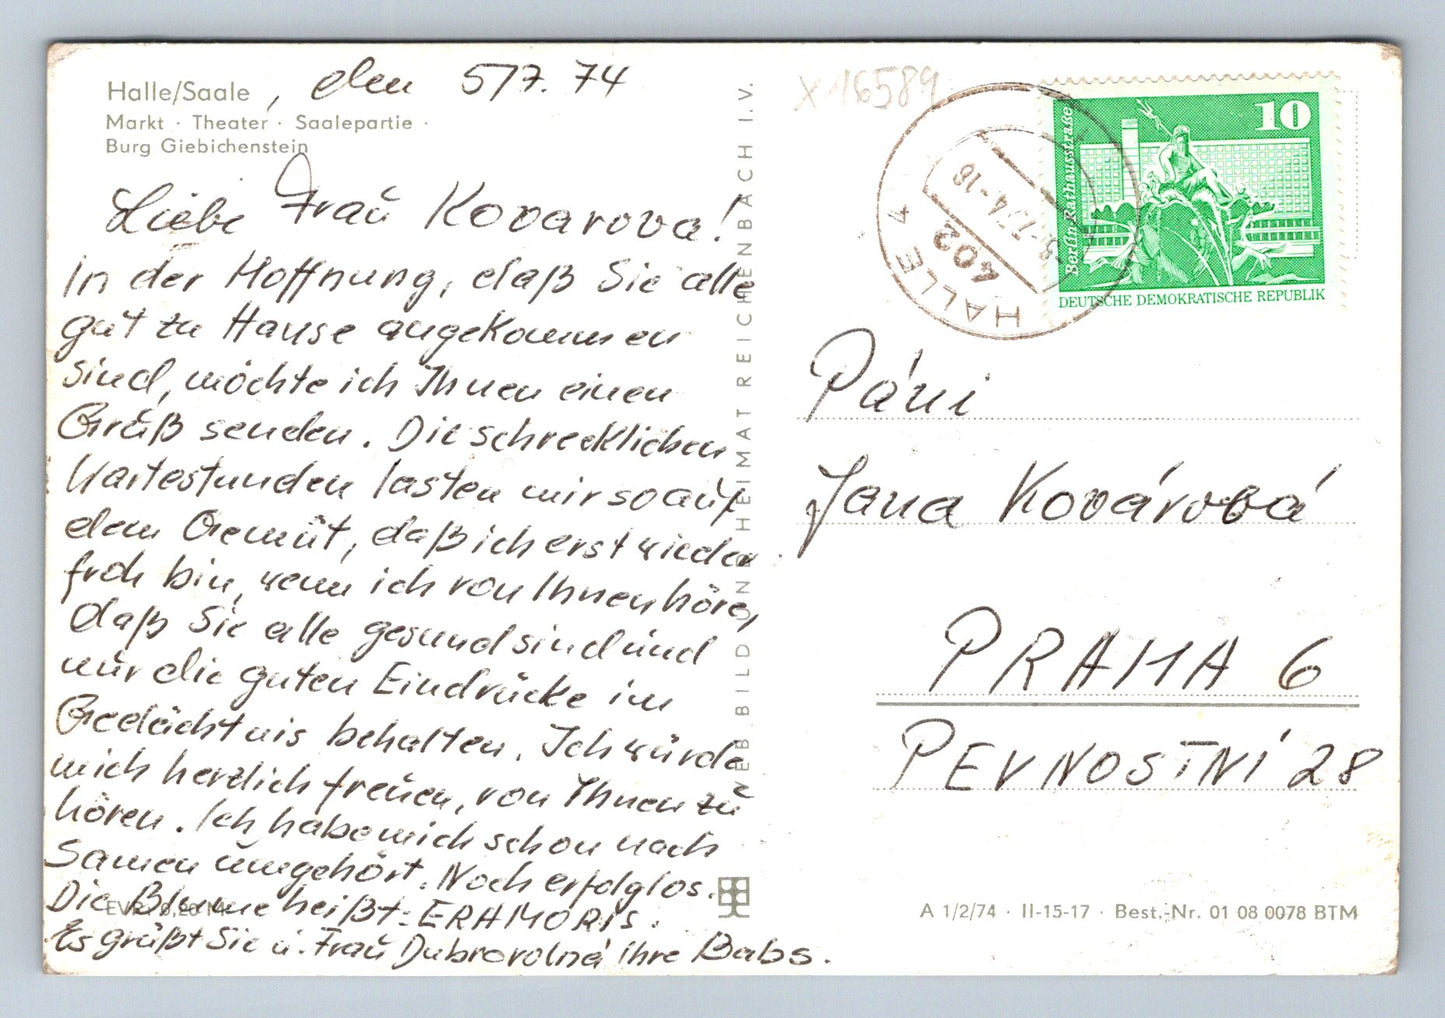 Halle/Saale, den 5/7. 74
Markt · Theater · Saalepartie ·
Burg Giebichenstein
Liebe Frau Kovarova!
In der Hoffnung, daß Sie alle
gut zu Hause angekommen
sind, möchte ich Ihnen einen
Gruß senden. Die schrecklichen
Wartestunden lasten mir so auf
dem Gemüt, daß ich erst wieder
froh bin, wenn ich von Ihnen höre,
daß Sie alle gesund sind und
nur die guten Eindrücke im
Gedächtnis behalten. Ich würde
mich herzlich freuen, von Ihnen zu
hören. Ich habe mich schon nach
Samen umgehört. Noch erfolglos.
Die Blume heißt: ERAMORIS.
EVP: 0,20 M
Es grüßt Sie u. Frau Dubrovolná ihre Babs.
VEB BILD UND HEIMAT REICHENBACH I.V.
X 16589
HALLE 4
402
-5.-7.74-16
10
Berlin-Rathausstraße
DEUTSCHE DEMOKRATISCHE REPUBLIK
Páni
Jana Kovárová
PRAHA 6
PEVNOSTNÍ 28
A 1/2/74 · II-15-17 · Best.-Nr. 01 08 0078 BTM